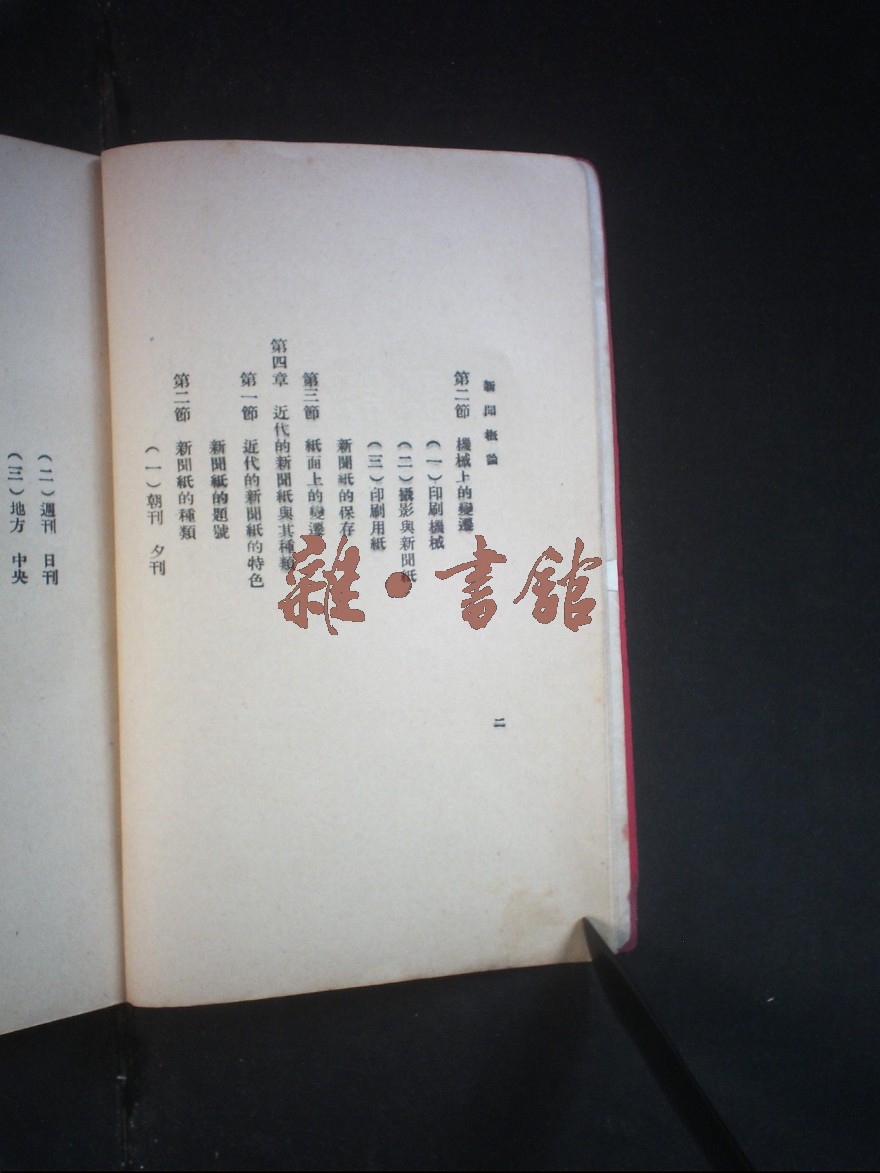 新聞概論
第二節 機械上的變遷
（一）印刷機械
（二）攝影與新聞紙
（三）印刷用紙
新聞紙的保存
第三節 紙面上的變遷
第四章 近代的新聞紙與其種類
第一節 近代的新聞紙的特色
新聞紙的題號
第二節 新聞紙的種類
（一）朝刊 夕刊
二
（二）週刊 日刊
（三）地方 中央
雜·書館